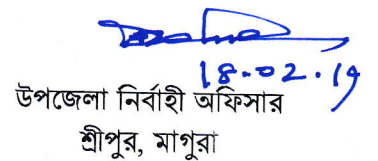 18-02-19
উপজেলা নির্বাহী অফিসার
শ্রীপুর, মাগুরা